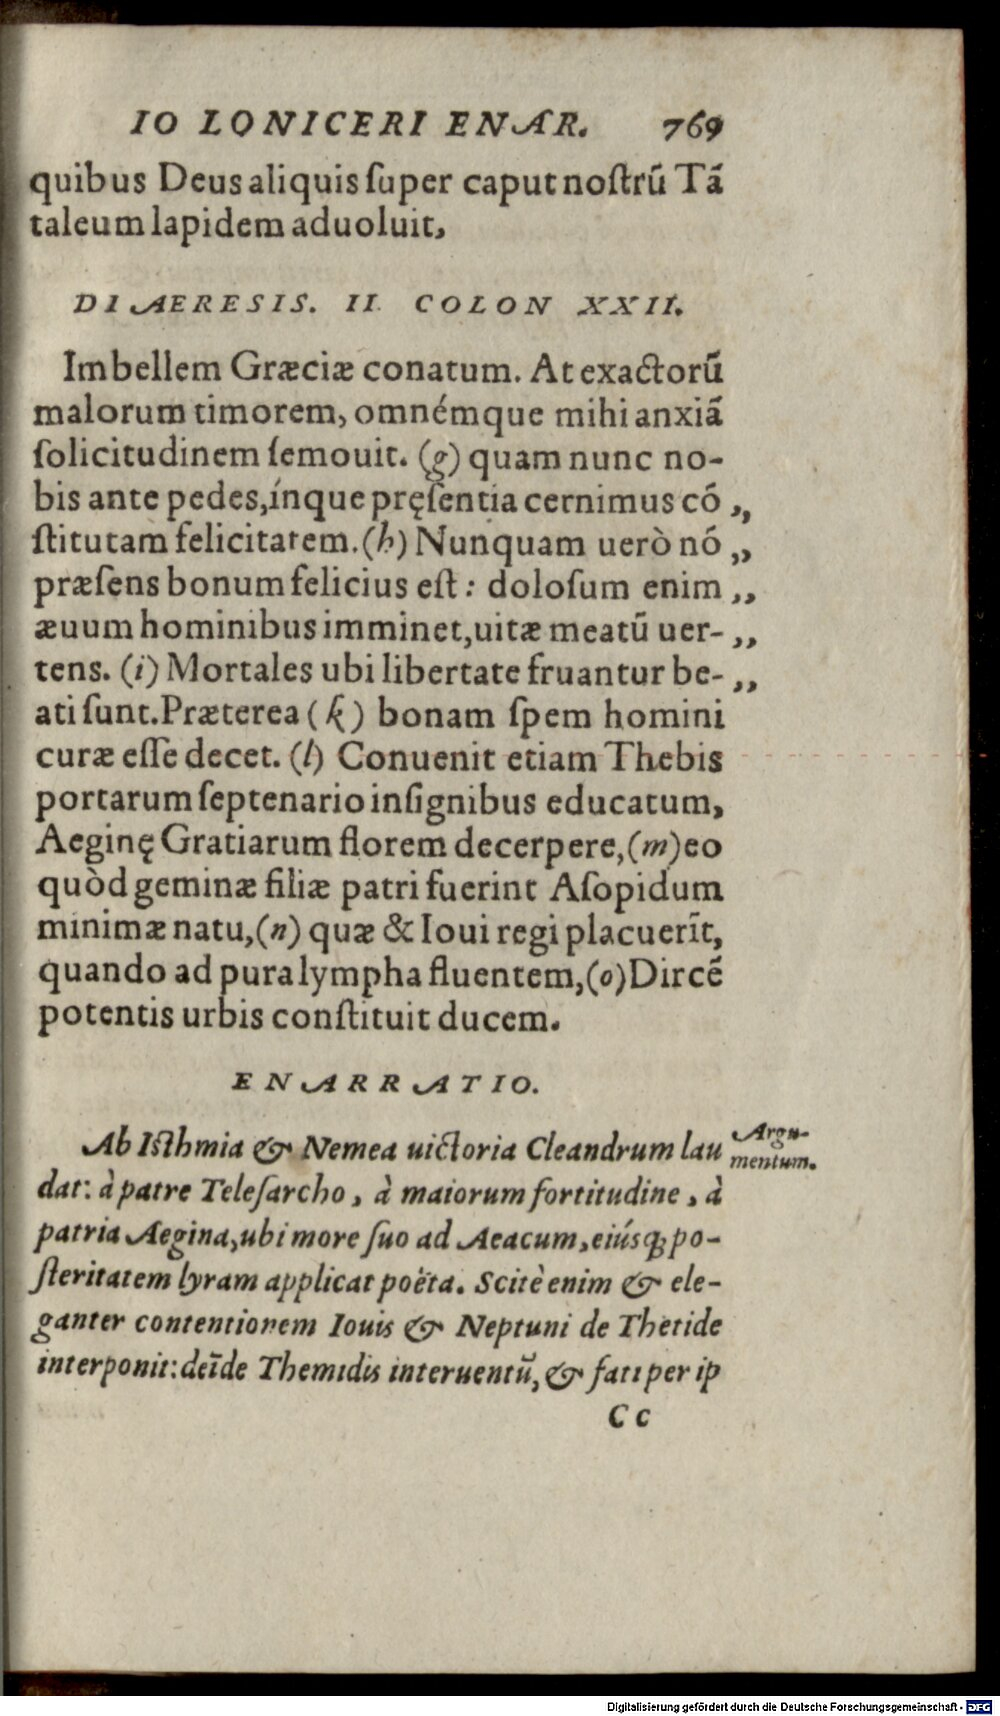 IO LONICERI ENAR. 769
quibus Deus aliquis ſuper caput noſtrū Tā
taleum lapidem aduoluit,
DIAERESIS. II. COLON XXII.
Imbellem Græciæ conatum. At exactorū
malorum timorem, omnémque mihi anxiā
ſolicitudinem ſemouit. (g) quam nunc no-
bis ante pedes, ínque pręſentia cernimus cō „
ſtitutam felicitatem. (h) Nunquam uerò nō „
præſens bonum felicius eſt: doloſum enim „
æuum hominibus imminet, uitæ meatū uer- „
tens. (i) Mortales ubi libertate fruantur be- „
ati ſunt. Præterea (k) bonam ſpem homini
curæ eſſe decet. (l) Conuenit etiam Thebis
portarum ſeptenario inſignibus educatum,
Aeginę Gratiarum florem decerpere, (m) eo
quòd geminæ filiæ patri fuerint Aſopidum
minimæ natu, (n) quæ & Ioui regi placuerīt,
quando ad pura lympha fluentem, (o) Dircē
potentis urbis conſtituit ducem.
ENARRATIO.
Ab Iſthmia & Nemea uictoria Cleandrum lau
Argu-
mentum.
dat: à patre Teleſarcho, à maiorum fortitudine, à
patria Aegina, ubi more ſuo ad Aeacum, eiúsq; po-
ſteritatem lyram applicat poëta. Scitè enim & ele-
ganter contentionem Iouis & Neptuni de Thetide
interponit: deīde Themidis interuentū, & fati per ip
Cc
Digitalisierung gefördert durch die Deutsche Forschungsgemeinschaft - DFG